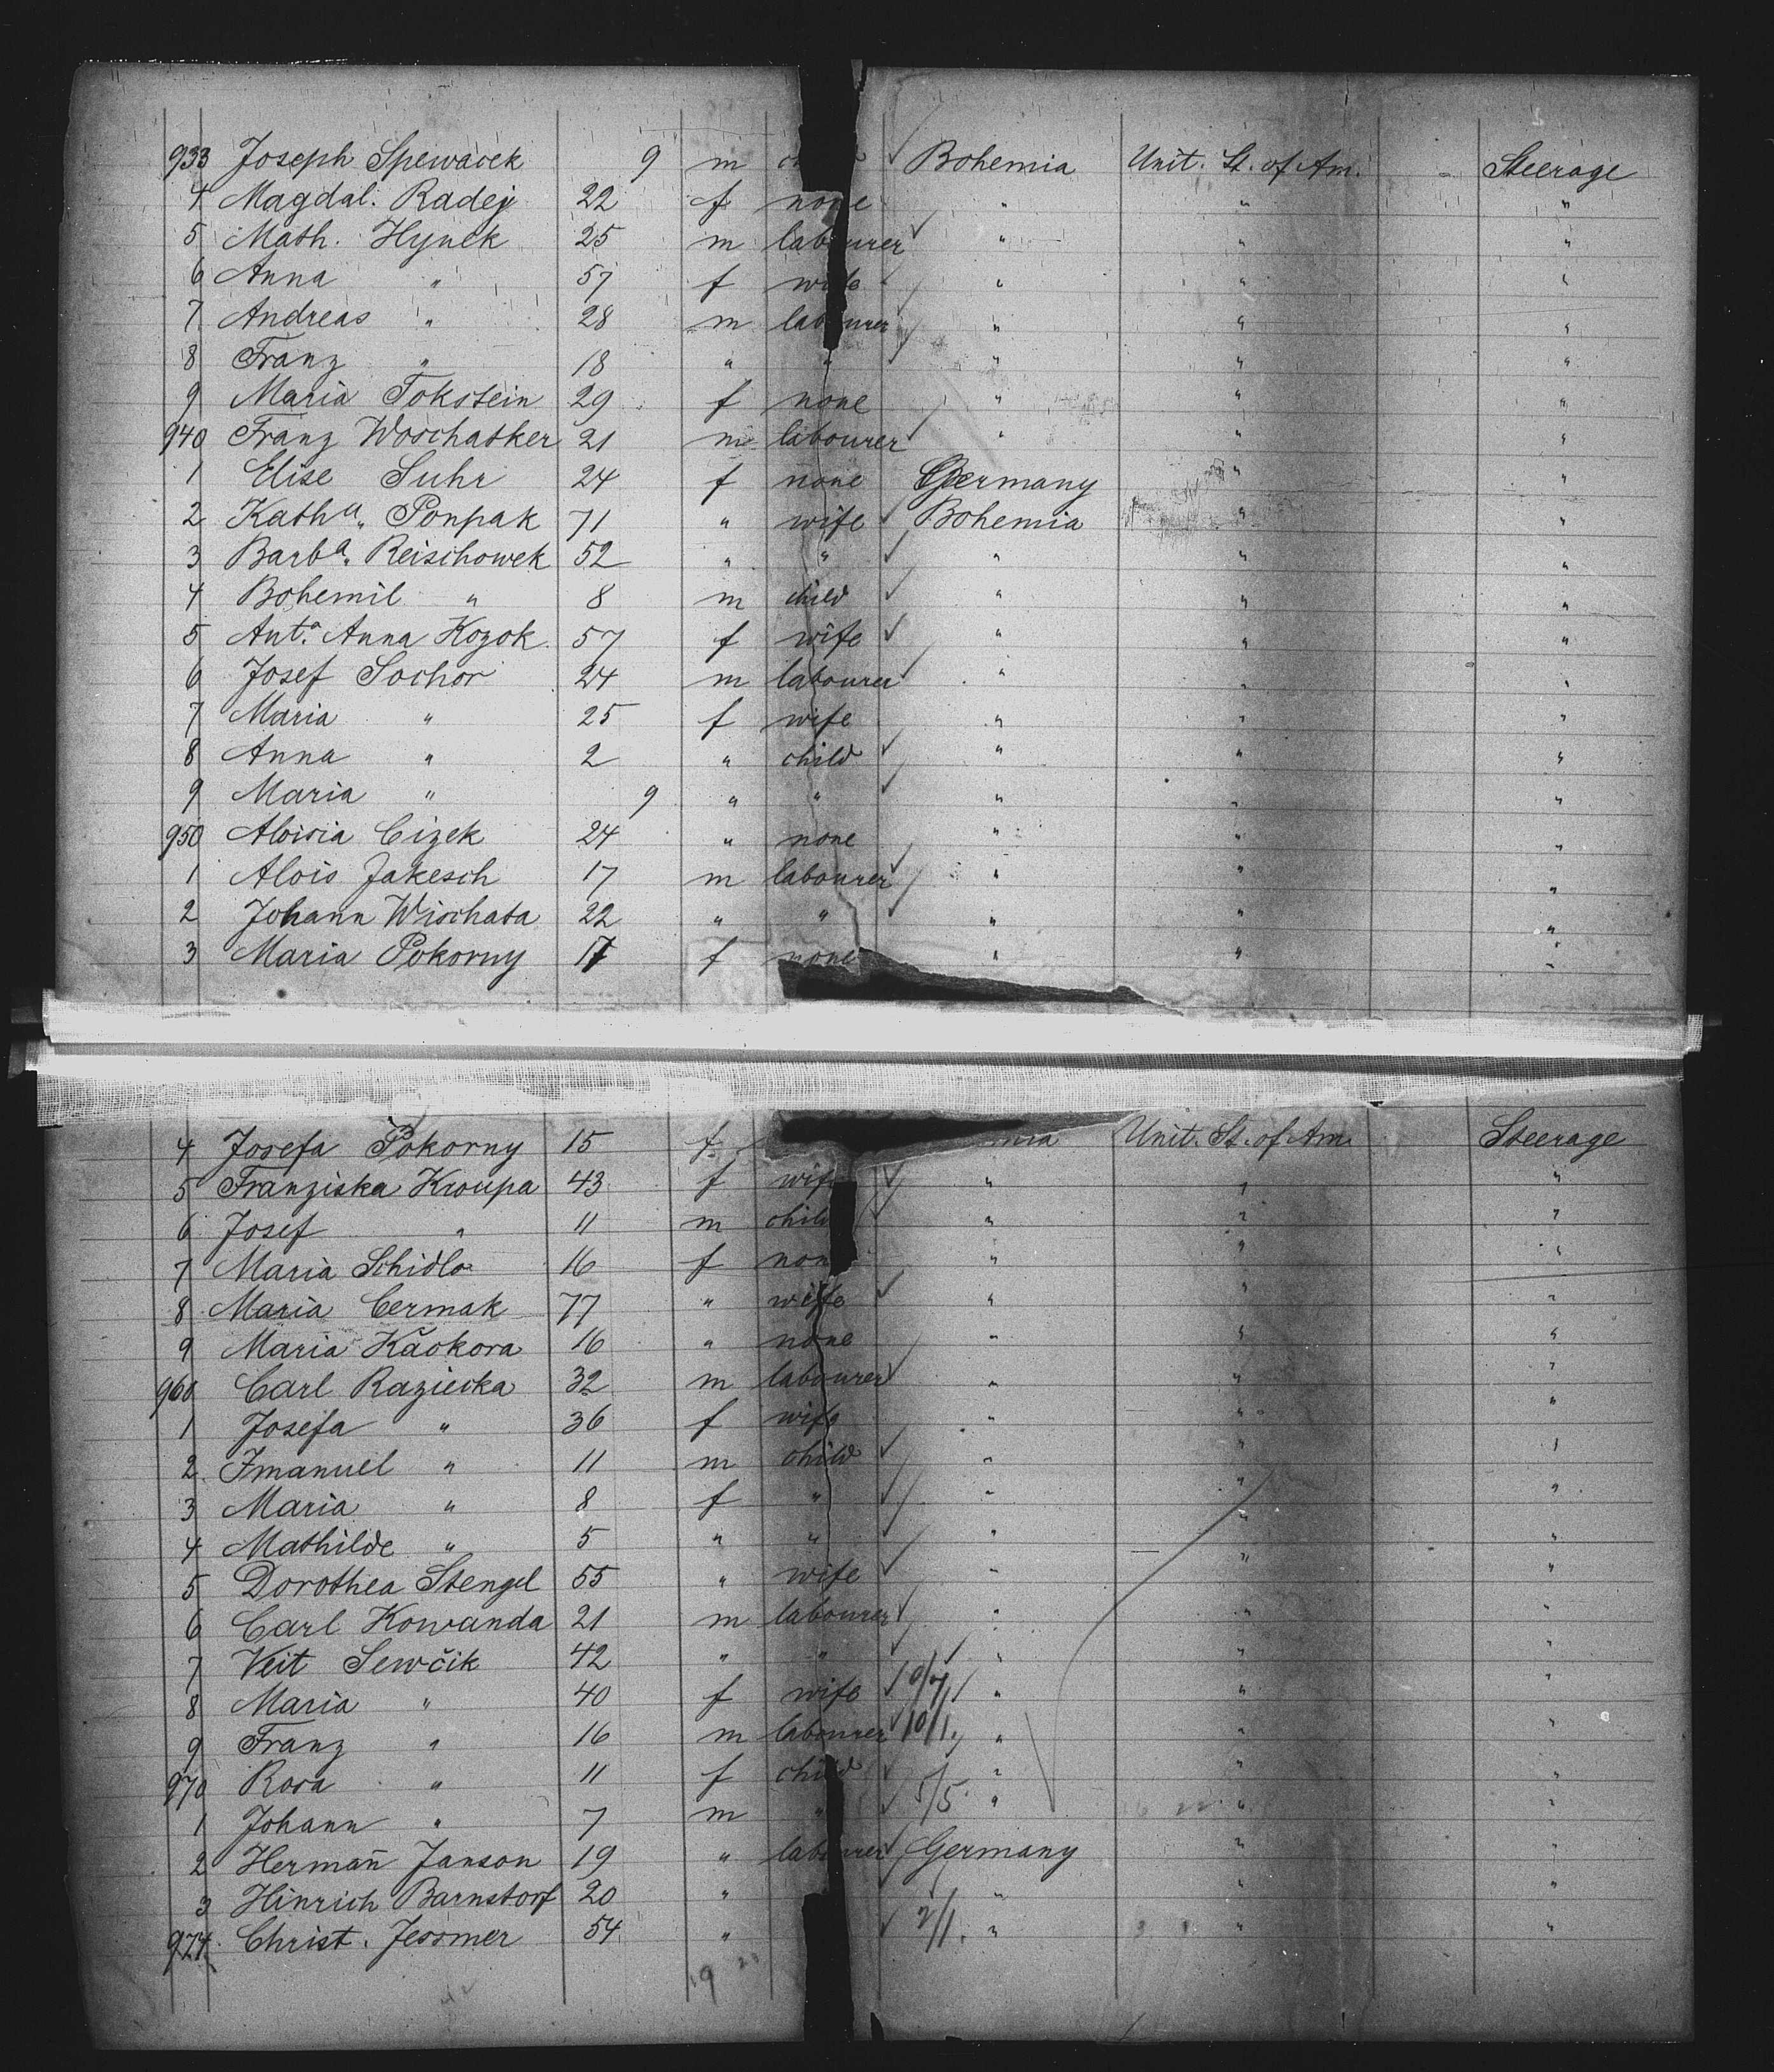 933 Joseph Spewacek 9 m Bohemia Unit. St. of Am. Steerage
4 Magdal. Radej 22 f none " " "
5 Math. Hynek 25 m labourer " " "
6 Anna " 57 f wife " " "
7 Andreas " 28 m labourer " " "
8 Franz " 18 " " " " "
9 Maria Tokstein 29 f none " " "
940 Franz Woschatker 21 m labourer " " "
1 Elise Suhr 24 f none Germany " "
2 Katha. Ponpak 71 " wife Bohemia " "
3 Barba. Reischowek 52 " " " " "
4 Bohemil " 8 m child " " "
5 Anta. Anna Kozok 57 f wife " " "
6 Josef Sochor 24 m labourer " " "
7 Maria " 25 f wife " " "
8 Anna " 2 " child " " "
9 Maria " 9 " " " " "
950 Aloisia Cizek 24 " none " " "
1 Alois Jakesch 17 m labourer " " "
2 Johann Wischata 22 " " " " "
3 Maria Pokorny 17 f none " " "
4 Josefa Pokorny 15 f Unit. St. of Am. Steerage
5 Franziska Kroupa 43 f wife " " "
6 Josef " 11 m child " " "
7 Maria Schidlo 16 f none " " "
8 Maria Cermak 77 " wife " " "
9 Maria Kaokora 16 " none " " "
960 Carl Raziecka 32 m labourer " " "
1 Josefa " 36 f wife " " "
2 Imanuel " 11 m child " " "
3 Maria " 8 f " " " "
4 Mathilde " 5 " " " " "
5 Dorothea Stengel 55 " wife " " "
6 Carl Kowanda 21 m labourer " " "
7 Veit Sewčik 42 " " " " "
8 Maria " 40 f wife " " "
9 Franz " 16 m labourer 10/1. " " "
970 Rosa " 11 f child " " "
1 Johann " 7 m " 5/5 " " "
2 Hermañ Janson 19 " labourer Germany " "
3 Hinrich Barnstorf 20 " " " "
974 Christ. Jessmer 54 " 2/1. " " "
19